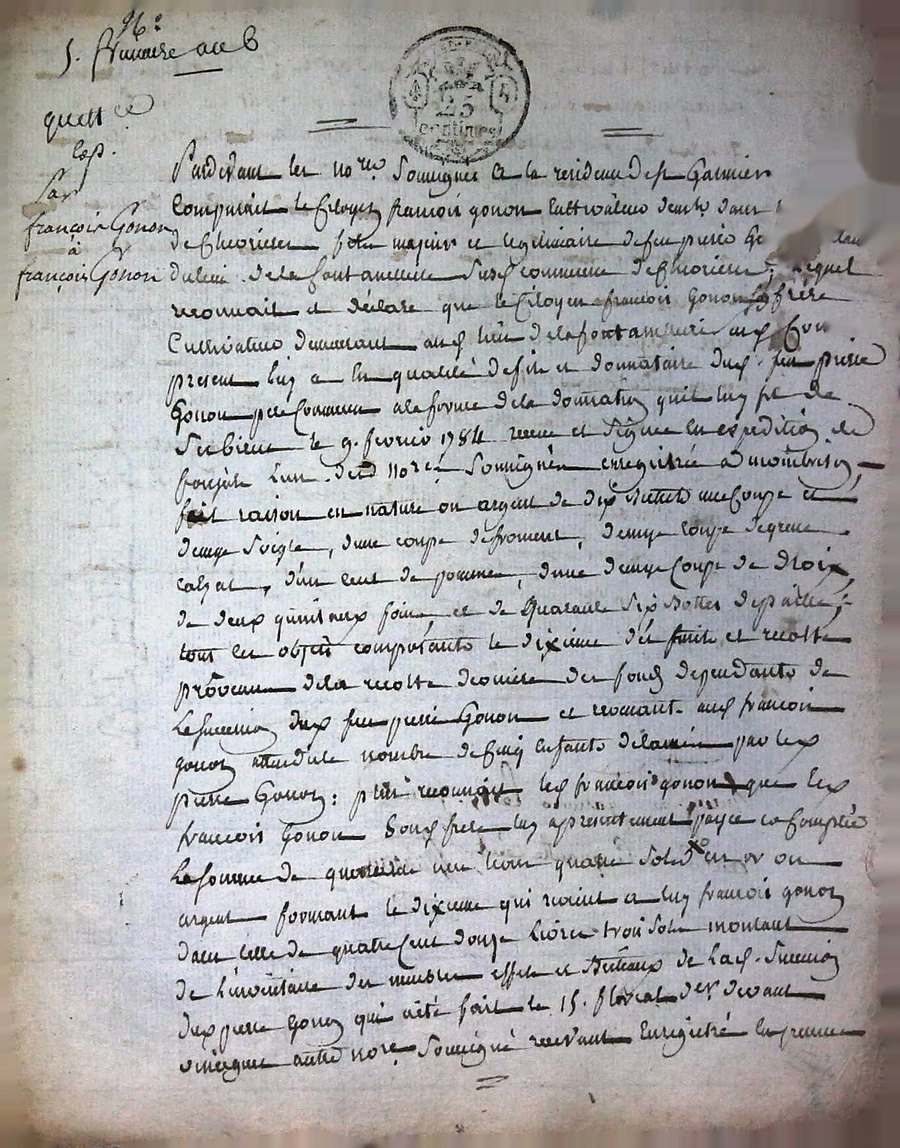 96.
5. frimaire an 6
quittce
cap.
Par
françois Gonon
à
françois Gonon
25
centimes
Pardevant les nores. Soussignés à la residence de st Galmier
Comparait le Citoyen françois gonon Cultivateur demt. dans
de Chevrieres fils majeur et legitimaire de feu pierre
du lieu de la fontanelle Susd commune de Chevrieres ; lequel
reconnait et declare que le Citoyen françois Gonon son frère
Cultivateur demeurant aud lieu de la fontanelle
present luy a en qualité de fils et donnataire dud. feu pierre
Gonon pere Commun a la forme de la donnation qu'il luy fit de
Ses biens le 9. fevrier 1784 reçue et Signée en expedition de
l'un desd nores. Soussignés enregistrée a montbrison
fait raison en nature ou argent de dix Bichets une Coupe et
demye Seigle, d'une coupe de froment, demye coupe de graine
, d'un cent de pommes, d'une demye Coupe de Noix,
de deux quintaux foin, et de Quarante Six Bottes de paille ;
tout les objets composants le dixieme des fruits et recolte
provenu de la recolte derniere des fonds dependants de
la Succession dud feu pierre Gonon et revenant aud françois
gonon attendu le nombre de Cinq enfants delaissés par led
pierre Gonon : plus reconnait led françois gonon que led
françois Gonon Sond frere luy a presentement payée et Comptée
la Somme de quarante une livre quatre Sols en or ou
argent formant le dixieme qui revient a luy françois gonon
dans celle de quatre Cent douze Livres trois Sols montant
de L'inventaire des meubles effets et Bestiaux de lad. Succession
dud pierre Gonon qui a été fait le 15. floreal der. devant
autre nore. Soussigné recevant Enregistré En presence